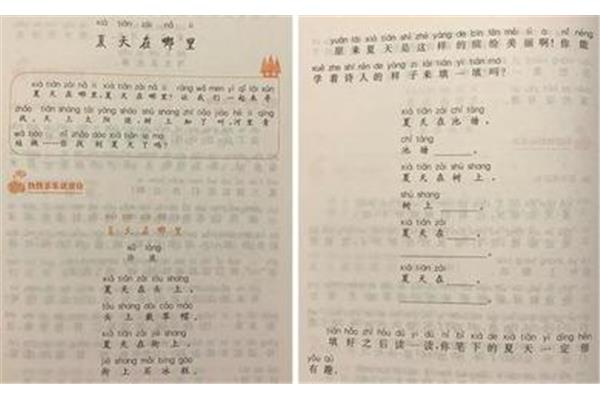 xià tiān zài nǎ lǐ
夏天在哪里
xià tiān zài nǎ lǐ xià tiān zài nǎ lǐ ràng wǒ men yì qǐ lái xún
夏天在哪里,夏天在哪里?让我们一起来寻
zhǎo tiān shàng tài yáng shài shù shang zhī liǎo jiào hé lǐ qīng
找。天上太阳晒,树上知了叫,河里青
wā bèng nǐ zhǎo dào xià tiān le ma
蛙蹦……你找到夏天了吗?
夏天在哪里
xǔ làng
许浪
xià tiān zài tóu shang
夏天在头上,
tóu shang dài cǎo mào
头上戴草帽。
xià tiān zài jiē shang
夏天在街上,
jiē shang mǎi bīng gāo
街上买冰糕。
yuán lái xià tiān shì zhè yàng de bīn fēn měi lì a nǐ néng
原来夏天是这样的缤纷美丽啊!你能
xué zhe shī rén de yàng zi lái tián yi tián ma
学着诗人的样子来填一填吗?
xià tiān zài chí táng
夏天在池塘,
chí táng
池塘______。
xià tiān zài shù shang
夏天在树上,
shù shang
树上______。
xià tiān zài
夏天在_____,
______。
xià tiān zài
夏天在_____,
______。
tián hǎo zhī hòu dú yi dú nǐ bǐ xià de xià tiān yí dìng hěn
填好之后读一读,你笔下的夏天一定很
yǒu qù
有趣。